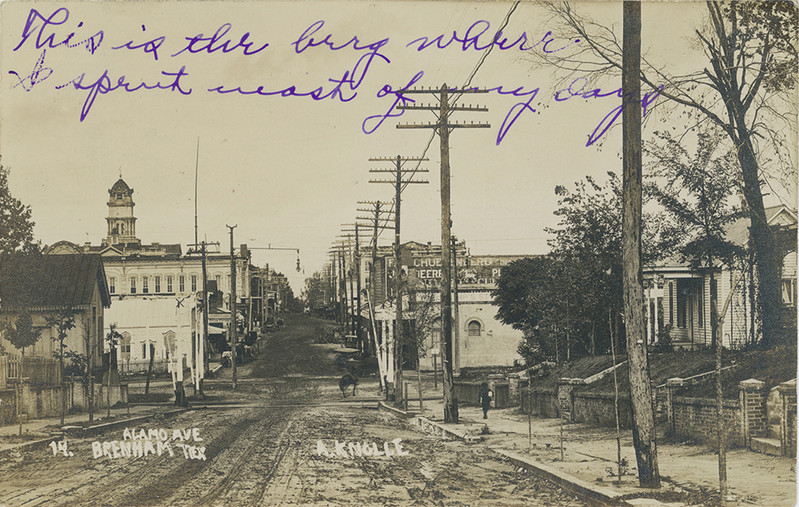 This is the berg where
I spent most of my days
DEERE
14. ALAMO AVE
BRENHAM TEX
A. KNOLLE